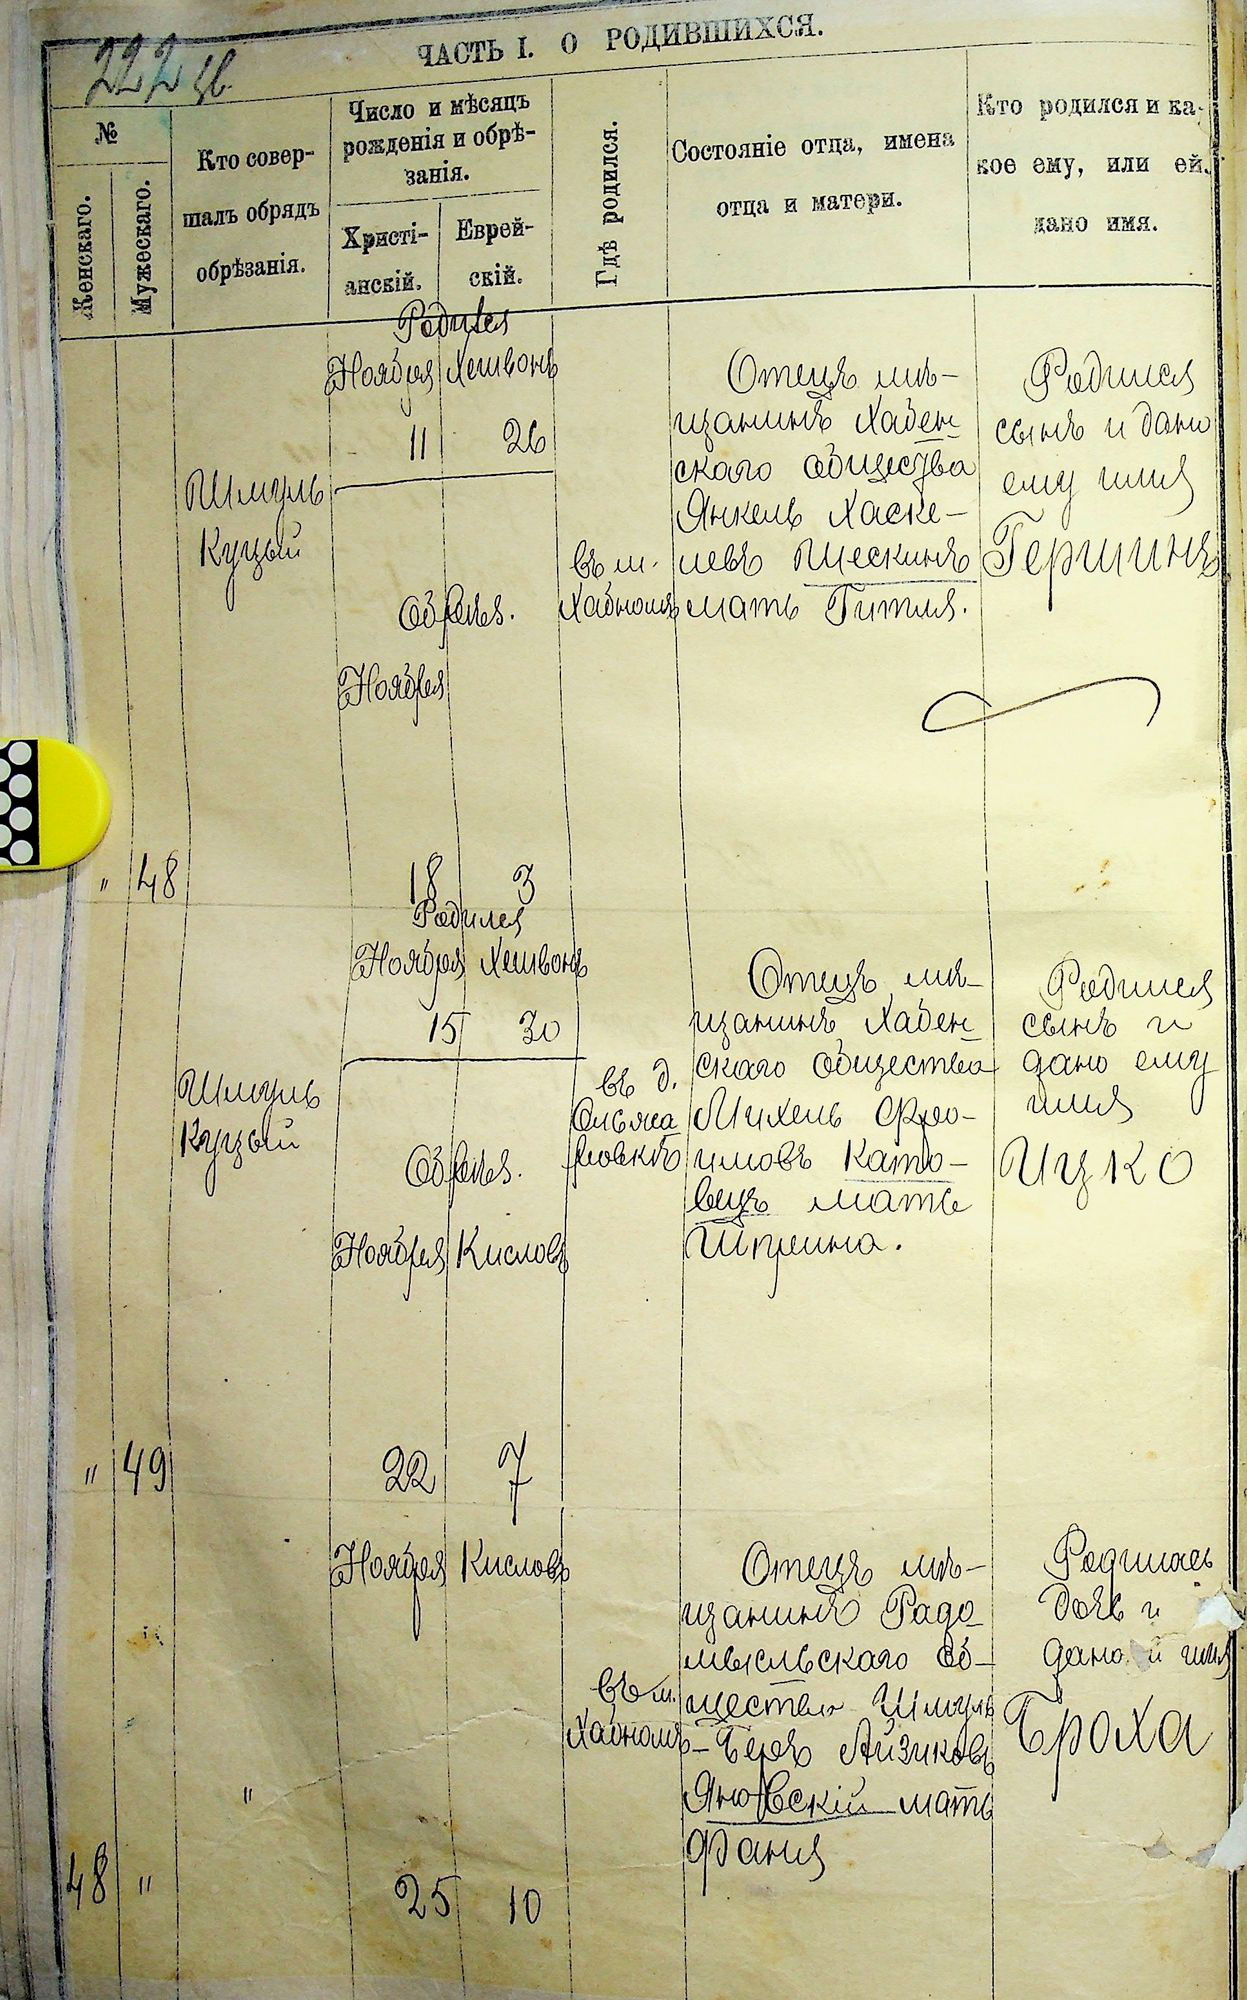 222
ЧАСТЬ I. О РОДИВШИХСЯ.
№
Женскаго.
Мужескаго.
Кто совер-
шалъ обрядъ
обрѣзанія.
Число и мѣсяцъ
рожденія и обрѣ-
занія.
Христі-
анскій.
Еврей-
скій.
Гдѣ родился.
Состояніе отца, имена
отца и матери.
Кто родился и ка-
кое ему, или ей,
дано имя.
" 48
Шмуль
Куцый
Родился
Ноября Хешвонъ
11 26
Обрѣз.
Ноября
18 3
въ м.
Хабномъ
Отецъ мѣ-
щанинъ Хабен-
скаго общества
Янкель Хаске-
левъ Шескинъ
мать Гитля.
Родился
сынъ и дано
ему имя
Гершинъ
" 49
Шмуль
Куцый
Родился
Ноября Хешвонъ
15 30
Обрѣз.
Ноября Кислевъ
22 7
въ д.
Отецъ мѣ-
щанинъ Хабен-
скаго общества
Михель Фро-
имовъ Като-
вецъ мать
Шприна.
Родился
сынъ и
дано ему
имя
Ицко
48 "
"
Ноября Кислевъ
25 10
въ м.
Хабномъ
Отецъ мѣ-
щанинъ Радо-
мысльскаго об-
щества Шмуль
-Беръ Айзиковъ
Яновскій мать
Фаня
Родилась
дочь и
дано й имя
Броха